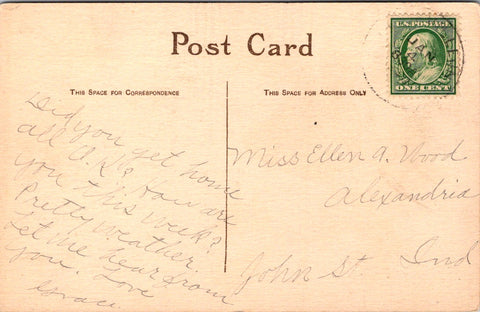 Post Card
THIS SPACE FOR CORRESPONDENCE
THIS SPACE FOR ADDRESS ONLY
U.S. POSTAGE
ONE CENT
JAN
Did you get home
all O.K? How are
you this week?
Pretty weather.
Let me hear from
you. Love
Grace.
Miss Ellen A. Wood
Alexandria
John St. Ind